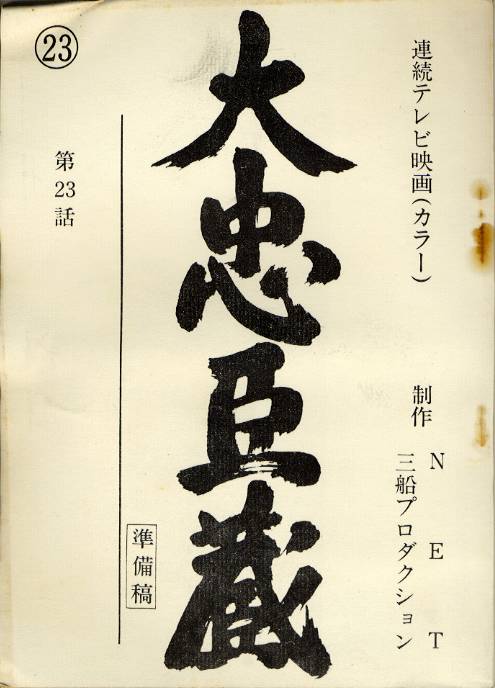 連続テレビ映画(カラー)
制作 NET
三船プロダクション
大忠臣蔵
準備稿
第23話
㉓